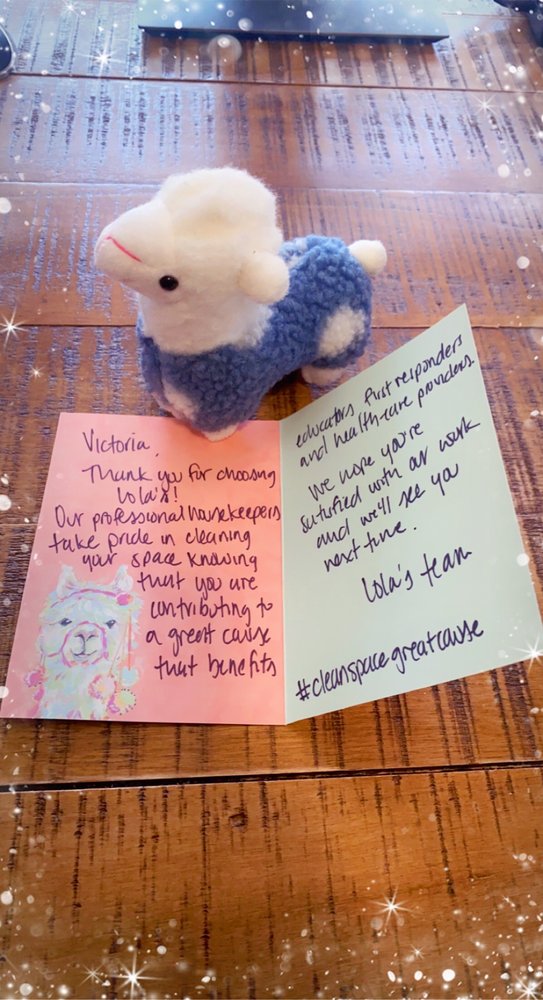 Victoria,
Thank you for choosing
Lola's!
Our professional housekeepers
take pride in cleaning
your space knowing
that you are
contributing to
a great cause
that benefits
educators, first responders
and healthcare providers.
We hope you're
satisfied with our work
and we'll see you
next time.
Lola's team
#cleanspacegreatcause